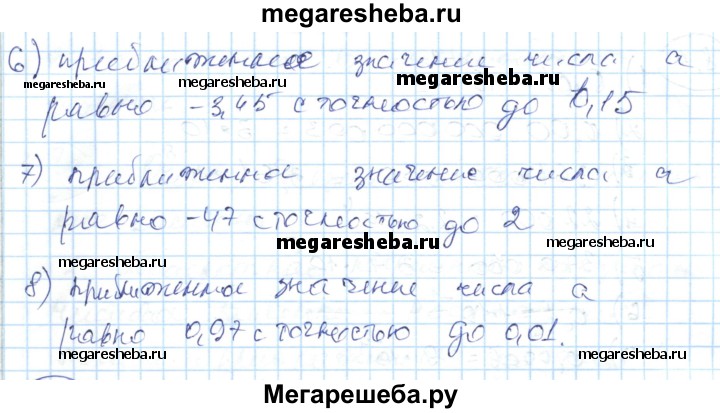 megaresheba.ru
6) приближенное значение числа a
megaresheba.ru
megaresheba.ru
равно -3,45 с точностью до 0,15
7) приближенно значение числа a
равно -47 с точностью до 2
megaresheba.ru
megaresheba.ru
megaresheba.ru
8) приближенное значение числа a
равно 0,97 с точностью до 0,01.
megaresheba.ru
megaresheba.ru
Мегарешеба.ру